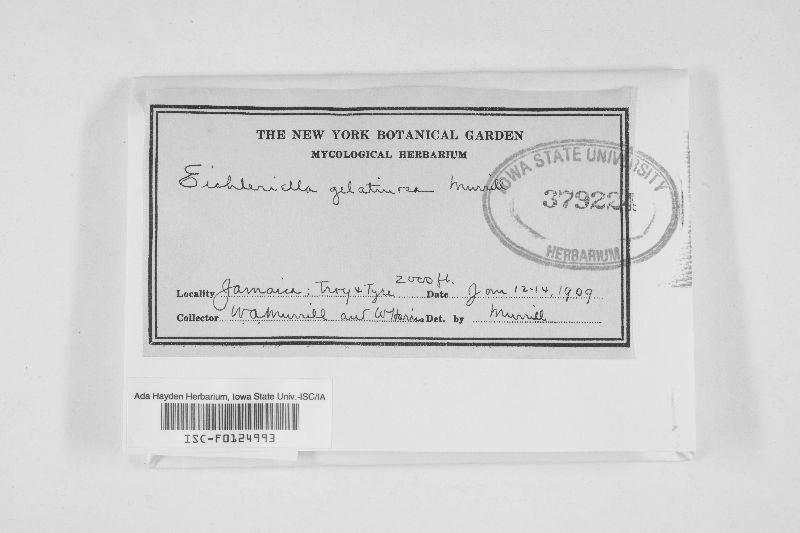 THE NEW YORK BOTANICAL GARDEN
MYCOLOGICAL HERBARIUM
Eichleriella gelatinosa Murrill
IOWA STATE UNIVERSITY
379224
HERBARIUM
2000 ft.
Locality Jamaica: Troy & Tyre Date Jan 12-14, 1909
Collector W A Murrill and W Harris Det. by Murrill
Ada Hayden Herbarium, Iowa State Univ.-ISC/IA
ISC-F0124993